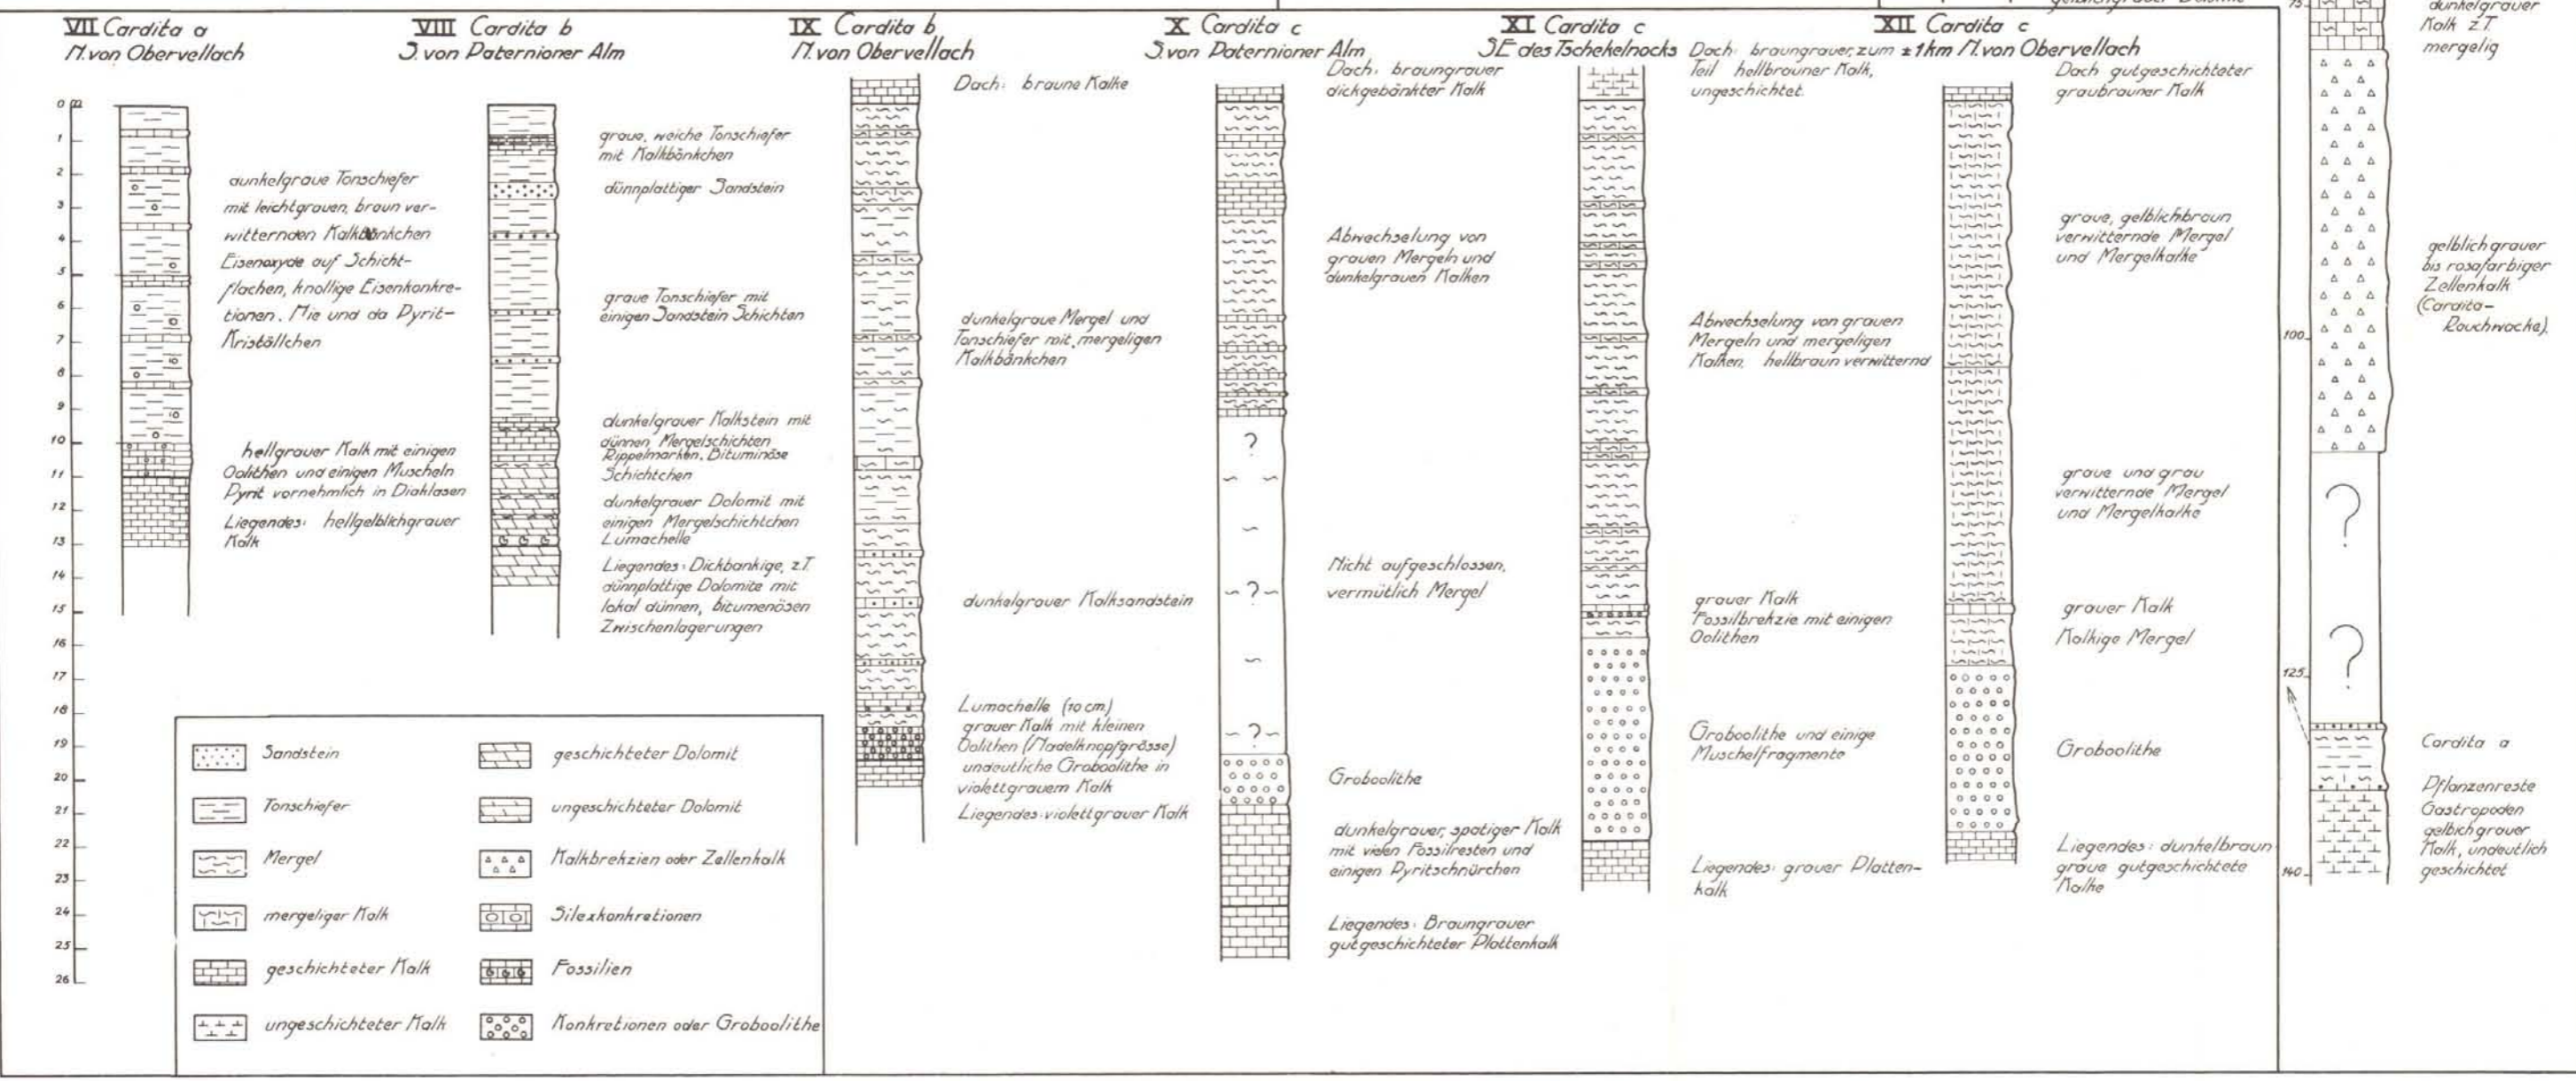 VII Cardita a
N. von Obervellach
0 m
1
2
3
4
5
6
7
8
9
10
11
12
13
14
15
16
17
18
19
20
21
22
23
24
25
26
dunkelgraue Tonschiefer
mit leichtgrauen, braun ver-
witternden Kalkbänkchen
Eisenoxyde auf Schicht-
flachen, knollige Eisenkonkre-
tionen. Hie und da Pyrit-
Kriställchen
hellgrauer Kalk mit einigen
Oolithen und einigen Muscheln
Pyrit vornehmlich in Diaklasen
Liegendes: hellgelblichgrauer
Kalk
VIII Cardita b
S. von Paternioner Alm
graue, weiche Tonschiefer
mit Kalkbänkchen
dünnplattiger Sandstein
graue Tonschiefer mit
einigen Sandstein Schichten
dunkelgrauer Kalkstein mit
dünnen Mergelschichten
Rippelmarken. Bituminöse
Schichtchen
dunkelgrauer Dolomit mit
einigen Mergelschichtchen
Lumachelle
Liegendes: Dickbankige, z.T.
dünnplattige Dolomite mit
lokal dünnen, bitumenösen
Zwischenlagerungen
IX Cardita b
N. von Obervellach
Dach: braune Kalke
dunkelgraue Mergel und
Tonschiefer mit mergeligen
Kalkbänkchen
dunkelgrauer Kalksandstein
Lumachelle (10 cm.)
grauer Kalk mit kleinen
Oolithen (Nadelknopfgrösse)
undeutliche Groboolithe in
violettgrauem Kalk
Liegendes: violettgrauer Kalk
X Cardita c
S. von Paternioner Alm
Dach: braungrauer
dickgebänkter Kalk
Abwechselung von
grauen Mergeln und
dunkelgrauen Kalken
?
Nicht aufgeschlossen,
vermütlich Mergel
?
?
Groboolithe
dunkelgrauer, spatiger Kalk
mit vielen Fossilresten und
einigen Pyritschnürchen
Liegendes: Braungrauer
gutgeschichteter Plattenkalk
XI Cardita c
SE des Tschekelnocks
Dach: braungrauer, zum
Teil hellbrauner Kalk,
ungeschichtet.
Abwechselung von grauen
Mergeln und mergeligen
Kalken, hellbraun verwitternd
grauer Kalk
Fossilbrekzie mit einigen
Oolithen
Groboolithe und einige
Muschelfragmente
Liegendes: grauer Platten-
kalk
XII Cardita c
± 1km N. von Obervellach
Dach gutgeschichteter
graubrauner Kalk
graue, gelblichbraun
verwitternde Mergel
und Mergelkalke
graue und grau
verwitternde Mergel
und Mergelkalke
grauer Kalk
Kalkige Mergel
Groboolithe
Liegendes: dunkelbraun
graue gutgeschichtete
Kalke
75
dunkelgrauer
Kalk z.T.
mergelig
gelblichgrauer
bis rosafarbiger
Zellenkalk
(Cardita-
Rauchwacke).
100
?
?
125
Cardita a
Pflanzenreste
Gastropoden
gelbichgrauer
Kalk, undeutlich
geschichtet
140
Sandstein
Tonschiefer
Mergel
mergeliger Kalk
geschichteter Kalk
ungeschichteter Kalk
geschichteter Dolomit
ungeschichteter Dolomit
Kalkbrekzien oder Zellenkalk
Silexkonkretionen
Fossilien
Konkretionen oder Groboolithe